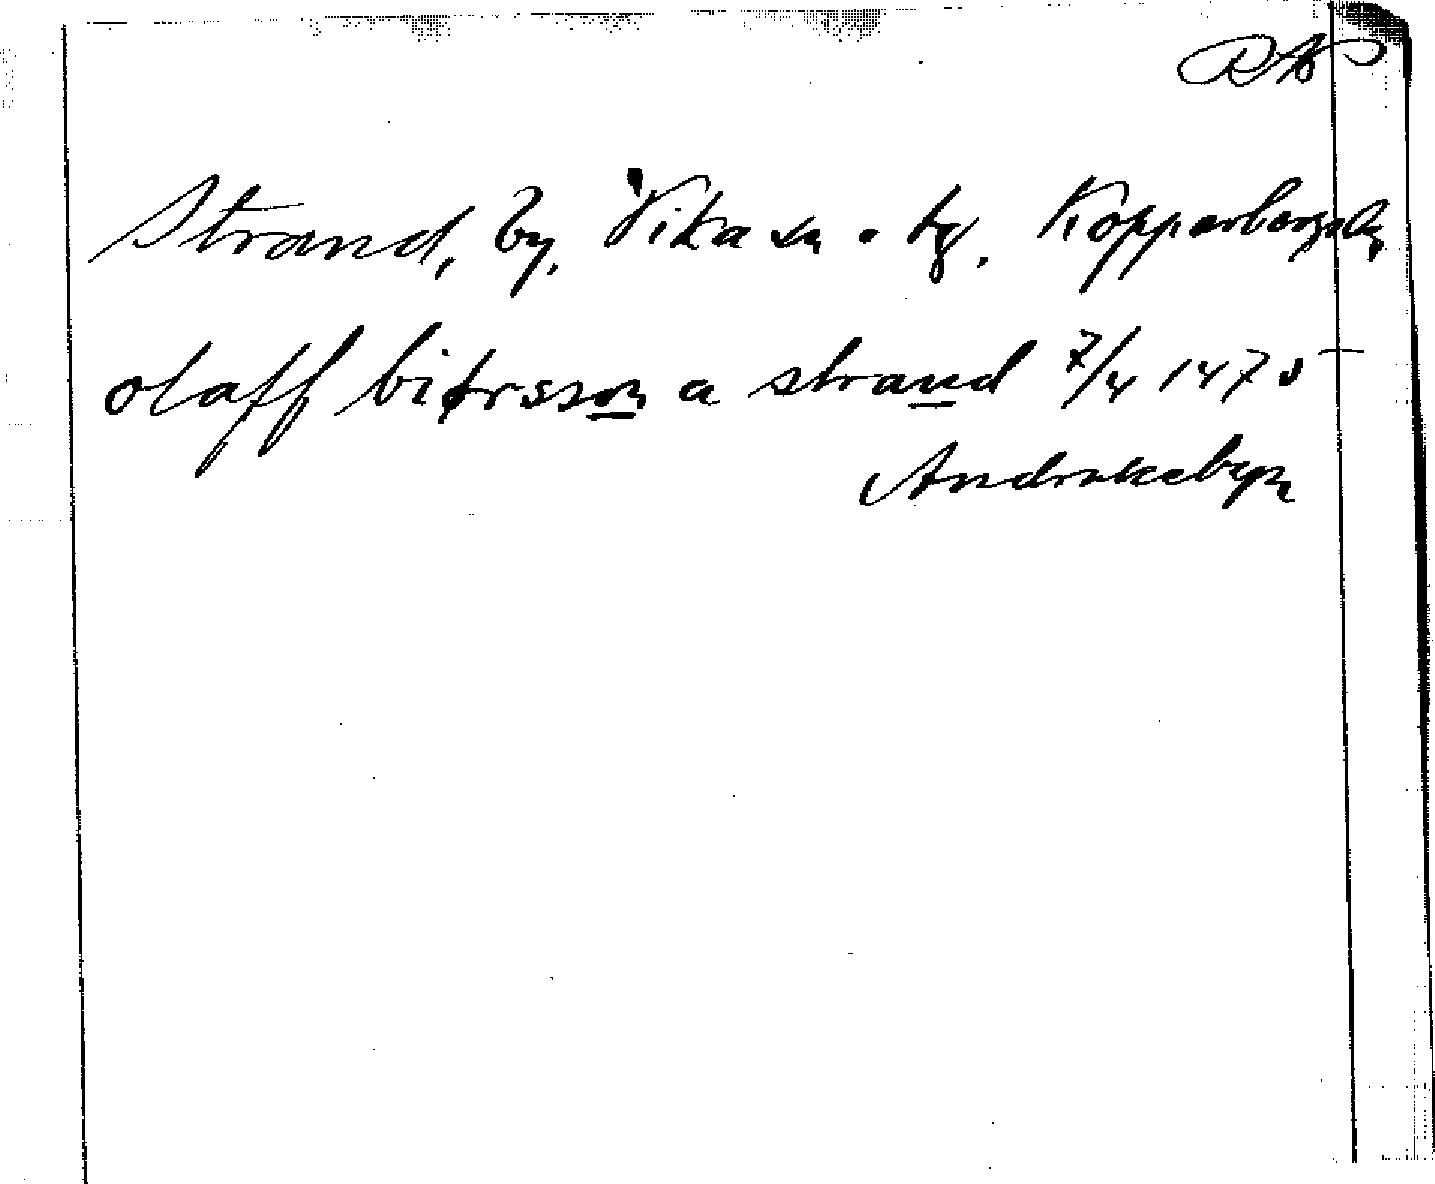 RA
Strand, by, Vika sn o tg. Kopparbergs l.
olaff biørsson a strand 7/4 1475
Andvikebyn